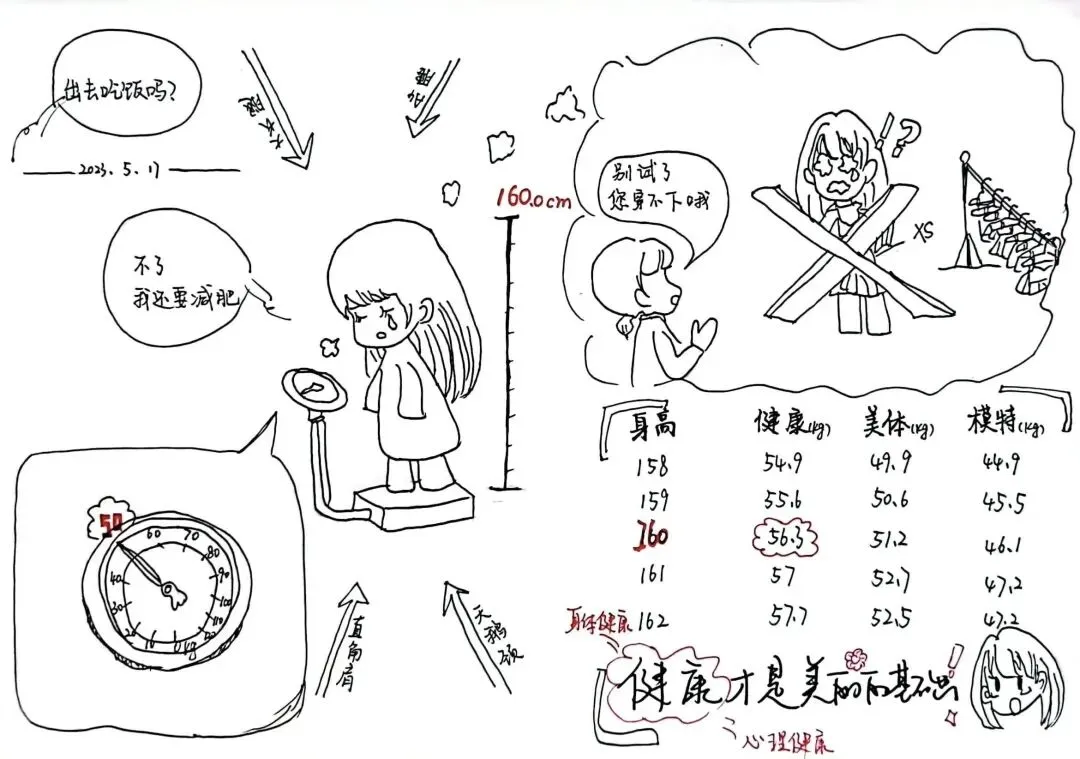 出去吃饭吗?
2023.5.17
不了
我还要减肥
大长腿
160.0cm
别试了
您穿不下哦
!?
XS
50
60
70
80
90
100
110
120
kg
10
20
30
40
直角肩
天鹅颈
身高 健康(kg) 美体(kg) 模特(kg)
158 54.9 49.9 44.9
159 55.6 50.6 45.5
160 56.3 51.2 46.1
161 57 52.7 47.2
162 57.7 52.5 47.2
身体健康
健康才是美丽的基础!
心理健康